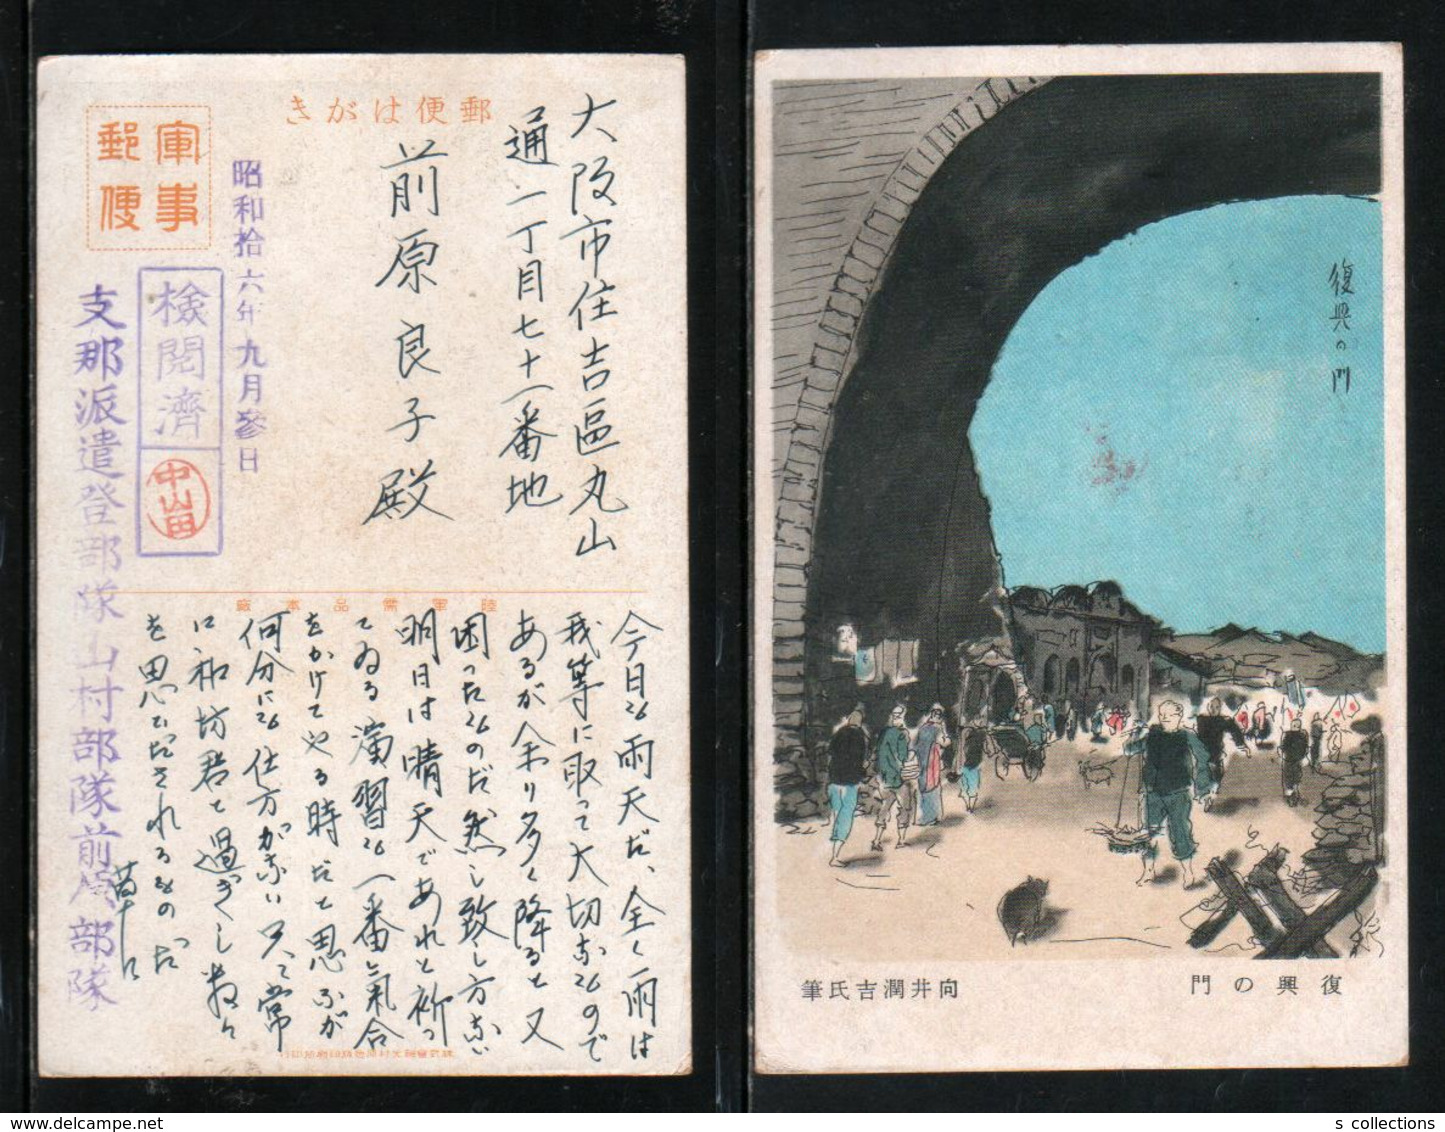 郵便はがき
軍事
郵便
昭和拾六年九月参日
檢閲濟
中山田
支那派遣登部隊山村部隊前原部隊
大阪市住吉區丸山
通一丁目七十一番地
前原良子殿
陸軍需品本廠
今日も雨天だ、全く雨は
我等に取って大切なもので
あるが余り多く降ると又
困ったものだ然し致し方ない
明日は晴天であれと祈っ
てゐる演習も一番氣合
をかけてやる時だと思ふが
何分にも仕方がない
に
を思ひださされるものだ
草々
復興の門
復興の門
向井潤吉氏筆
s collections